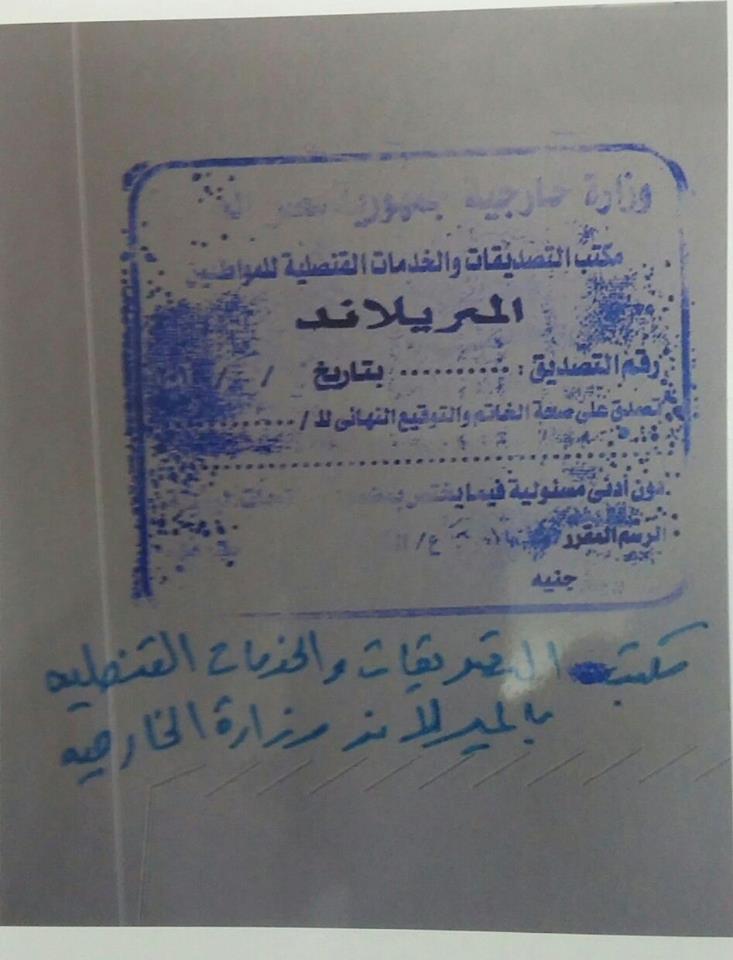 وزارة خارجية جمهورية مصر
مكتب التصديقات والخدمات القنصلية للمواطنين
الميريلاند
رقم التصديق : .......... بتاريخ / /
تصدق على صحة الخاتم والتوقيع النهائى للـ / ..........
دون أدنى مسئولية فيما يختص
الرسم المقرر
جنيه
مكتب التصديقات والخدمات القنصليه
بالميرلاند وزارة الخارجيه